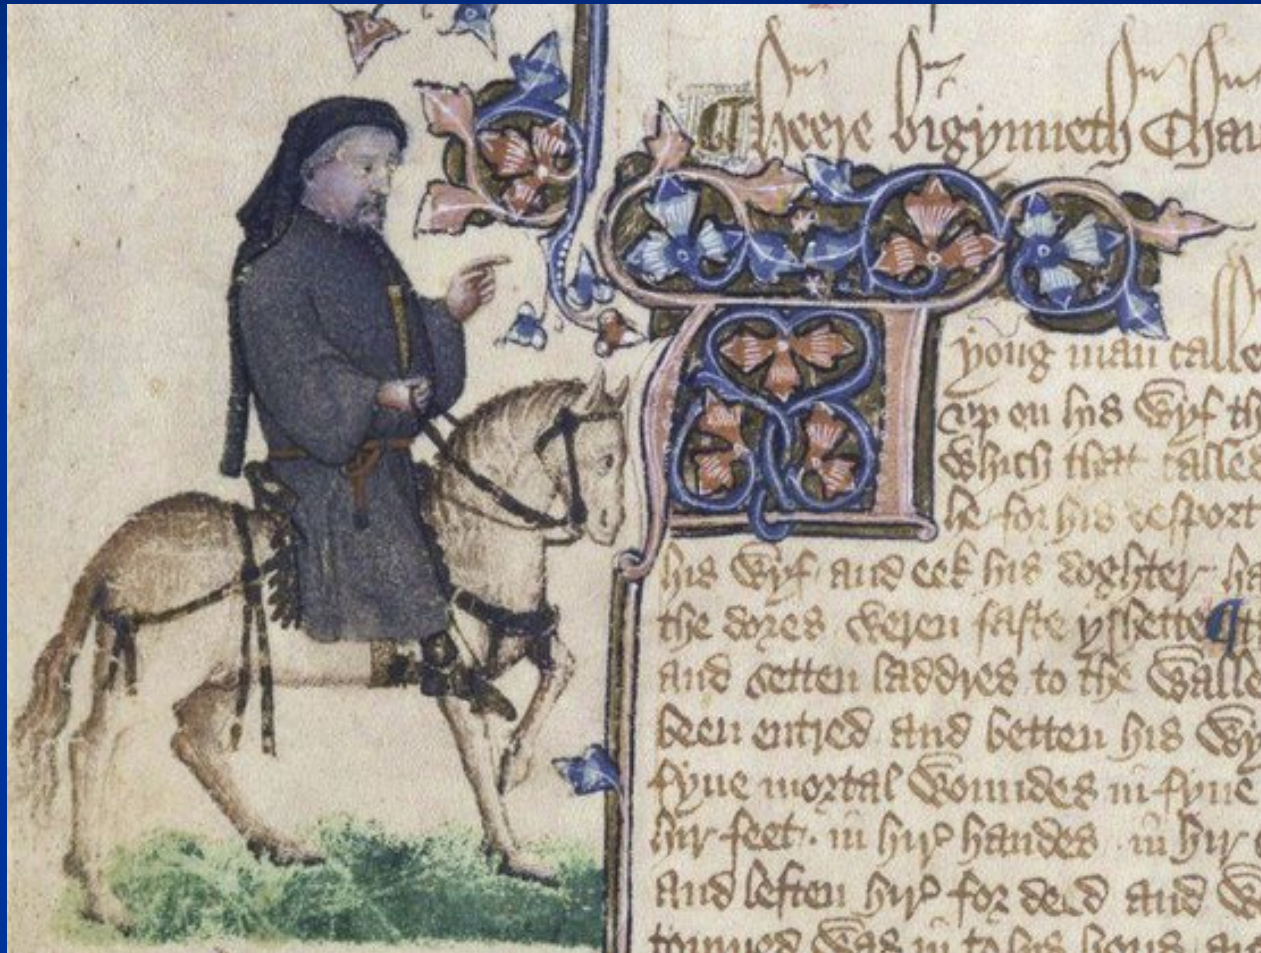 Heere bigynneth Chau
yong man calle
vp on his wyf th
which that called
he for his desport
his wyf and eek his doghter ha
the dores weren faste yshette
and setten laddres to the walle
been entred and betten his wy
fyue mortal woundes in fyue
hir feet in hir handes in hir
and leften hir for deed and w
torned was in to his hous